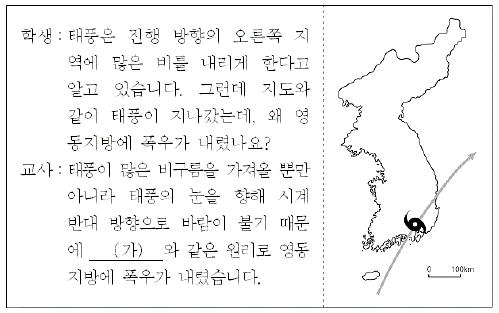 학생 : 태풍은 진행 방향의 오른쪽 지
역에 많은 비를 내리게 한다고
알고 있습니다. 그런데 지도와
같이 태풍이 지나갔는데, 왜 영
동지방에 폭우가 내렸나요?
교사 : 태풍이 많은 비구름을 가져올 뿐만
아니라 태풍의 눈을 향해 시계
반대 방향으로 바람이 불기 때문
에 (가) 와 같은 원리로 영동
지방에 폭우가 내렸습니다.
0 100km